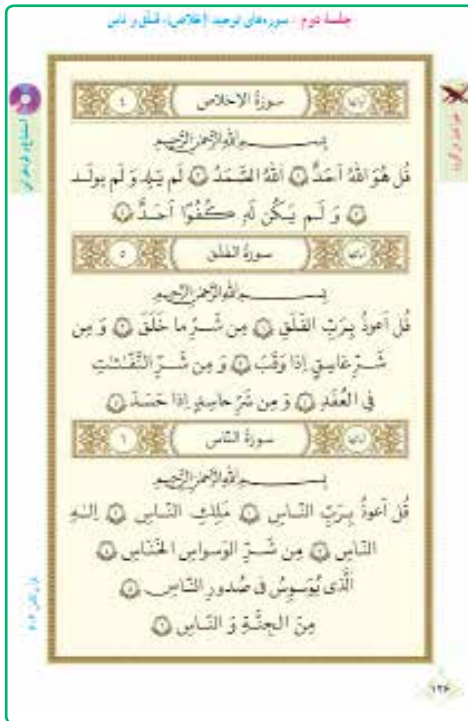 جلسهٔ دوم : سوره‌های توحید (اخلاص)، فلق و ناس
سورةُ الإخلاص ٤
بِسْمِ اللهِ الرَّحْمٰنِ الرَّحيمِ
قُل هُوَ اللهُ اَحَدٌ ١ اَللهُ الصَّمَدُ ٢ لَم يَلِد وَ لَم يولَد
٣ وَ لَم يَكُن لَهٗ كُفُوًا اَحَدٌ ٤
سورةُ الفلق ٥
بِسْمِ اللهِ الرَّحْمٰنِ الرَّحيمِ
قُل اَعوذُ بِرَبِّ الفَلَقِ ١ مِن شَرِّ ما خَلَقَ ٢ وَ مِن
شَرِّ غاسِقٍ اِذا وَقَبَ ٣ وَ مِن شَرِّ النَّفّٰثٰتِ
فِی العُقَدِ ٤ وَ مِن شَرِّ حاسِدٍ اِذا حَسَدَ ٥
سورةُ النّاس ٦
بِسْمِ اللهِ الرَّحْمٰنِ الرَّحيمِ
قُل اَعوذُ بِرَبِّ النّاسِ ١ مَلِكِ النّاسِ ٢ اِلٰهِ
النّاسِ ٣ مِن شَرِّ الوَسواسِ الخَنّاسِ ٤
اَلَّذی یُوَسوِسُ فی صُدورِ النّاسِ ٥
مِنَ الجِنَّةِ وَ النّاسِ ٦
١٢۶